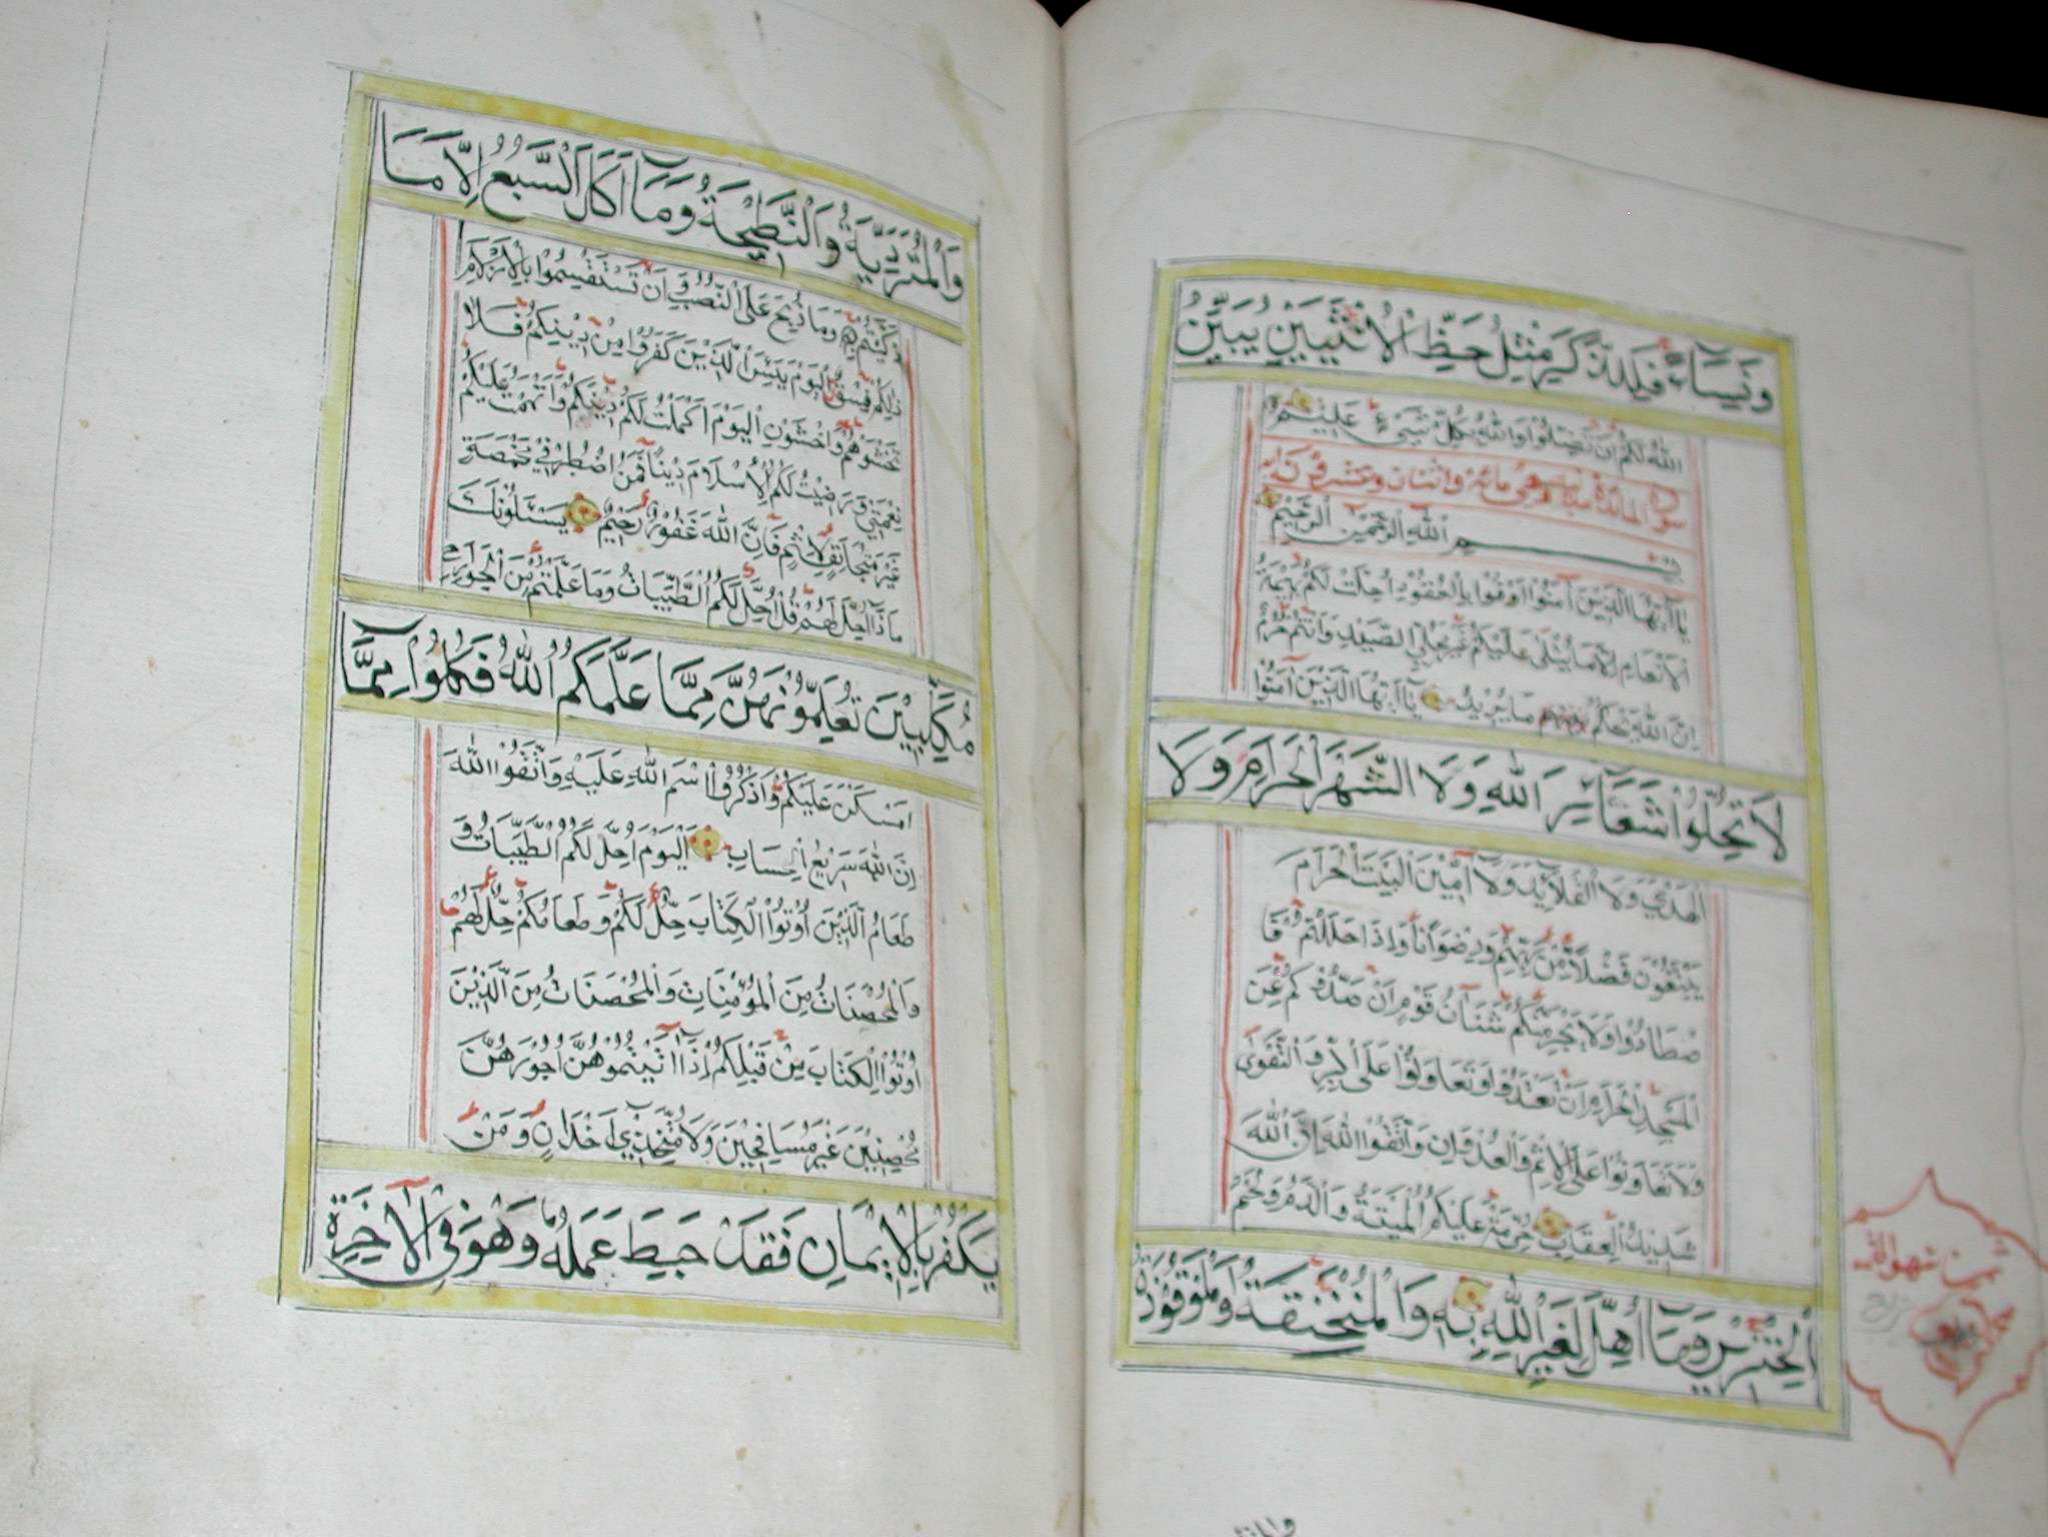 وَنِسَاءً فَلِلذَّكَرِ مِثْلُ حَظِّ الْاُنْثَيَيْنِ يُبَيِّنُ
اللّٰهُ لَكُمْ اَنْ تَضِلُّوا وَاللّٰهُ بِكُلِّ شَيْءٍ عَلِيْمٌ
سورة المائدة مدنية وهي مائة واثنتان وعشرون اية
بِسْمِ اللّٰهِ الرَّحْمٰنِ الرَّحِيْمِ
يَا اَيُّهَا الَّذِيْنَ آمَنُوْا اَوْفُوْا بِالْعُقُوْدِ اُحِلَّتْ لَكُمْ بَهِيْمَةُ
الْاَنْعَامِ اِلَّا مَا يُتْلٰى عَلَيْكُمْ غَيْرَ مُحِلِّي الصَّيْدِ وَاَنْتُمْ حُرُمٌ
اِنَّ اللّٰهَ يَحْكُمُ مَا يُرِيْدُ يَا اَيُّهَا الَّذِيْنَ آمَنُوْا
لَا تُحِلُّوْا شَعَآئِرَ اللّٰهِ وَلَا الشَّهْرَ الْحَرَامَ وَلَا
الْهَدْيَ وَلَا الْقَلَائِدَ وَلَا آمِّيْنَ الْبَيْتَ الْحَرَامَ
يَبْتَغُوْنَ فَضْلًا مِنْ رَبِّهِمْ وَرِضْوَانًا وَاِذَا حَلَلْتُمْ فَا
صْطَادُوْا وَلَا يَجْرِمَنَّكُمْ شَنَآنُ قَوْمٍ اَنْ صَدُّوْكُمْ عَنِ
الْمَسْجِدِ الْحَرَامِ اَنْ تَعْتَدُوْا وَتَعَاوَنُوْا عَلَى الْبِرِّ وَالتَّقْوٰى
وَلَا تَعَاوَنُوْا عَلَى الْاِثْمِ وَالْعُدْوَانِ وَاتَّقُوا اللّٰهَ اِنَّ اللّٰهَ
شَدِيْدُ الْعِقَابِ حُرِّمَتْ عَلَيْكُمُ الْمَيْتَةُ وَالدَّمُ وَلَحْمُ
الْخِنْزِيْرِ وَمَا اُهِلَّ لِغَيْرِ اللّٰهِ بِهِ وَالْمُنْخَنِقَةُ وَالْمَوْقُوْذَةُ
وَالْمُتَرَدِّيَةُ وَالنَّطِيْحَةُ وَمَا اَكَلَ السَّبُعُ اِلَّا مَا
ذَكَّيْتُمْ وَمَا ذُبِحَ عَلَى النُّصُبِ وَاَنْ تَسْتَقْسِمُوْا بِالْاَزْلَامِ
ذٰلِكُمْ فِسْقٌ اَلْيَوْمَ يَئِسَ الَّذِيْنَ كَفَرُوْا مِنْ دِيْنِكُمْ فَلَا
تَخْشَوْهُمْ وَاخْشَوْنِ اَلْيَوْمَ اَكْمَلْتُ لَكُمْ دِيْنَكُمْ وَاَتْمَمْتُ عَلَيْكُمْ
نِعْمَتِيْ وَرَضِيْتُ لَكُمُ الْاِسْلَامَ دِيْنًا فَمَنِ اضْطُرَّ فِيْ مَخْمَصَةٍ
غَيْرَ مُتَجَانِفٍ لِاِثْمٍ فَاِنَّ اللّٰهَ غَفُوْرٌ رَحِيْمٌ يَسْئَلُوْنَكَ
مَاذَا اُحِلَّ لَهُمْ قُلْ اُحِلَّ لَكُمُ الطَّيِّبَاتُ وَمَا عَلَّمْتُمْ مِنَ الْجَوَارِحِ
مُكَلِّبِيْنَ تُعَلِّمُوْنَهُنَّ مِمَّا عَلَّمَكُمُ اللّٰهُ فَكُلُوْا مِمَّا
اَمْسَكْنَ عَلَيْكُمْ وَاذْكُرُوا اسْمَ اللّٰهِ عَلَيْهِ وَاتَّقُوا اللّٰهَ
اِنَّ اللّٰهَ سَرِيْعُ الْحِسَابِ اَلْيَوْمَ اُحِلَّ لَكُمُ الطَّيِّبَاتُ وَ
طَعَامُ الَّذِيْنَ اُوْتُوا الْكِتَابَ حِلٌّ لَكُمْ وَطَعَامُكُمْ حِلٌّ لَهُمْ
وَالْمُحْصَنَاتُ مِنَ الْمُؤْمِنَاتِ وَالْمُحْصَنَاتُ مِنَ الَّذِيْنَ
اُوْتُوا الْكِتَابَ مِنْ قَبْلِكُمْ اِذَا آتَيْتُمُوْهُنَّ اُجُوْرَهُنَّ
مُحْصِنِيْنَ غَيْرَ مُسَافِحِيْنَ وَلَا مُتَّخِذِيْ اَخْدَانٍ وَمَنْ
يَكْفُرْ بِالْاِيْمَانِ فَقَدْ حَبِطَ عَمَلُهُ وَهُوَ فِي الْآخِرَةِ